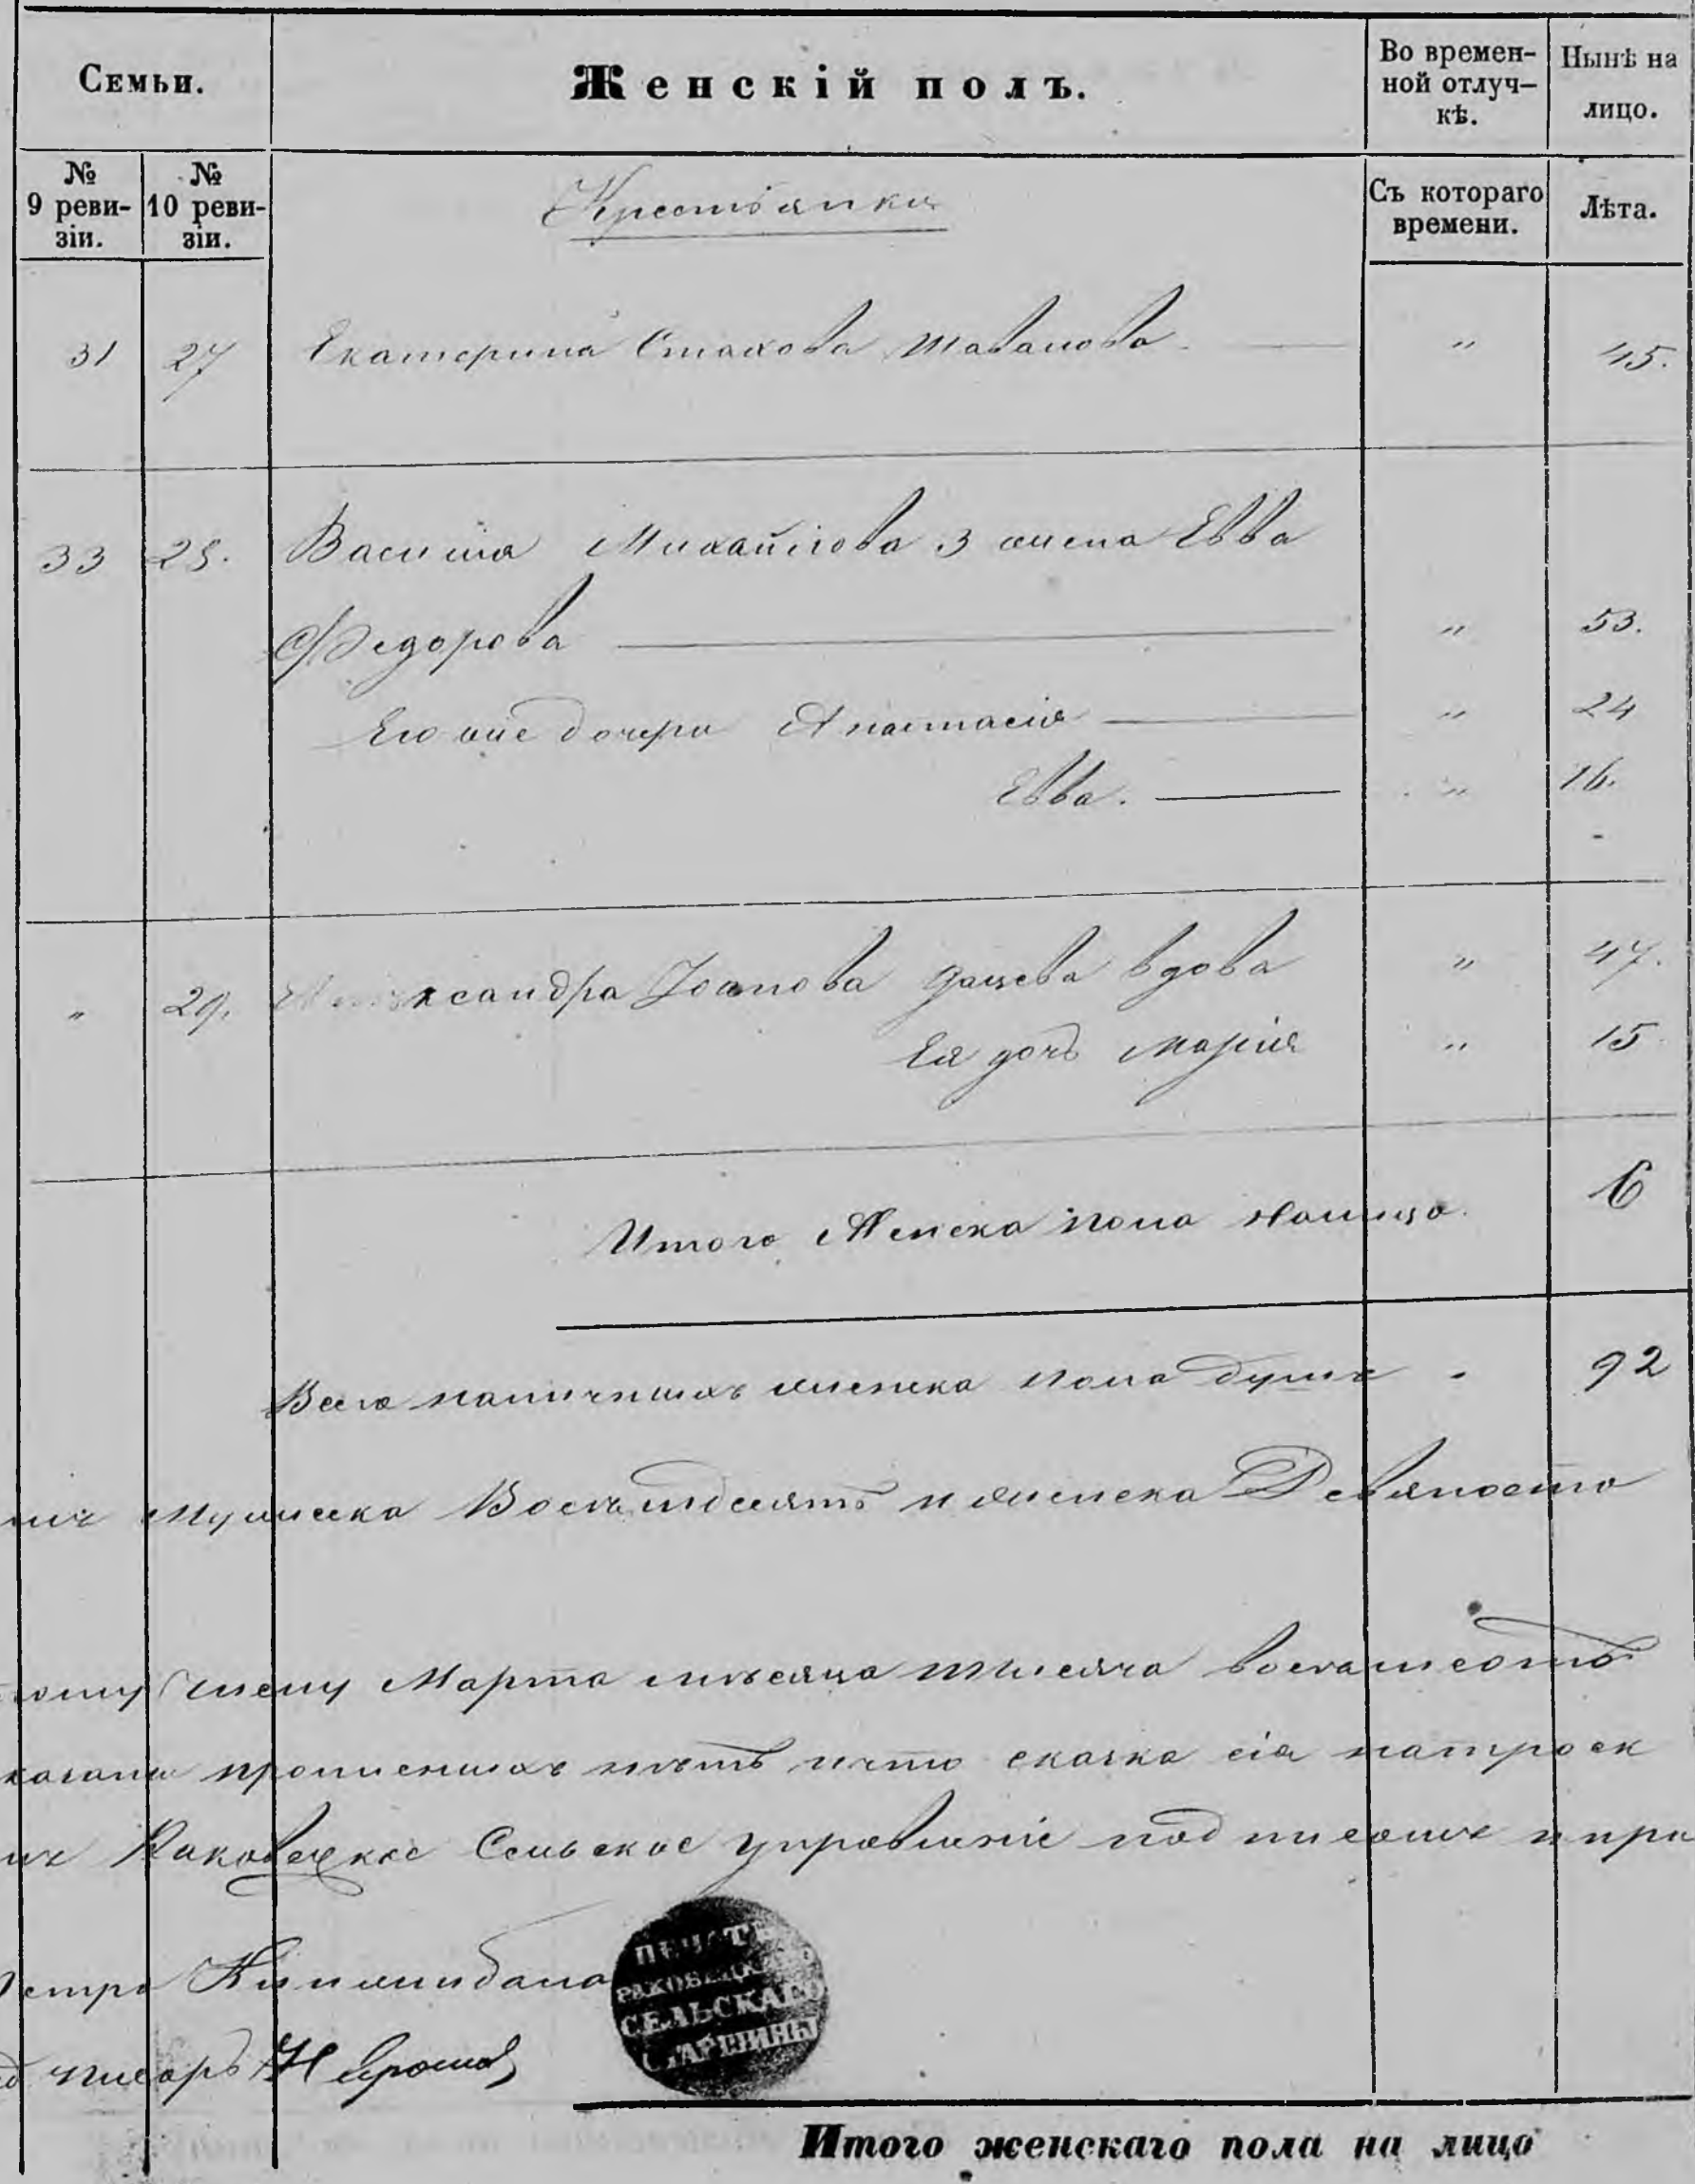 Семьи.
Женскій полъ.
Во времен-
ной отлуч-
кѣ.
Нынѣ на
лицо.
№
9 реви-
зіи.
№
10 реви-
зіи.
Крестьянки
Съ котораго
времени.
Лѣта.
31 27 Екатерина Стахова " 45.
33 28. Василія Михайлова 3 жена Евва
Федорова " 53.
Его же дочери Анастасія " 24
Евва. " 16.
" 29. Александра Іоанова вдова " 47.
Ея дочь Марія " 15
Итого Женска пола налицо. 6
Всего наличныхъ женска пола душъ 92
мужеска Восемдесятъ и женска Девяносто
числу Марта мѣсяца тысяча восемьсотъ
нѣтъ и что сказка сія
Раковецкое Сельское управленіе
Петро
писарь
ПЕЧАТЬ
РАКОВЕЦКАГО
СЕЛЬСКАГО
СТАРШИНЫ
Итого женскаго пола на лицо